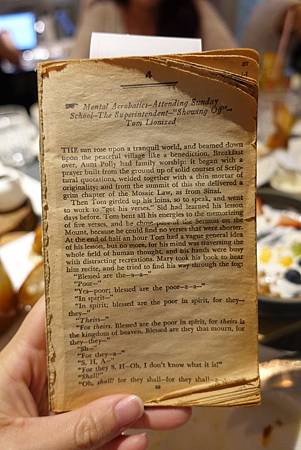 4
Mental Acrobatics—Attending Sunday
School—The Superintendent—"Showing Off"—
Tom Lionized
THE sun rose upon a tranquil world, and beamed down
upon the peaceful village like a benediction. Breakfast
over, Aunt Polly had family worship: it began with a
prayer built from the ground up of solid courses of Scrip-
tural quotations, welded together with a thin mortar of
originality; and from the summit of this she delivered a
grim chapter of the Mosaic Law, as from Sinai.
Then Tom girded up his loins, so to speak, and went
to work to "get his verses." Sid had learned his lesson
days before. Tom bent all his energies to the memorizing
of five verses, and he chose part of the Sermon on the
Mount, because he could find no verses that were shorter.
At the end of half an hour Tom had a vague general idea
of his lesson, but no more, for his mind was traversing the
whole field of human thought, and his hands were busy
with distracting recreations. Mary took his book to hear
him recite, and he tried to find his way through the fog:
"Blessed are the—a—a—"
"Poor—"
"Yes—poor; blessed are the poor—a—a—"
"In spirit—"
"In spirit; blessed are the poor in spirit, for they—
they—"
"Theirs—"
"For theirs. Blessed are the poor in spirit, for theirs is
the kingdom of heaven. Blessed are they that mourn, for
they—they—"
"Sh—"
"For they—a—"
"S, H, A—"
"For they S, H—Oh, I don't know what it is!"
"Shall!"
"Oh, shall! for they shall—for they shall—a—